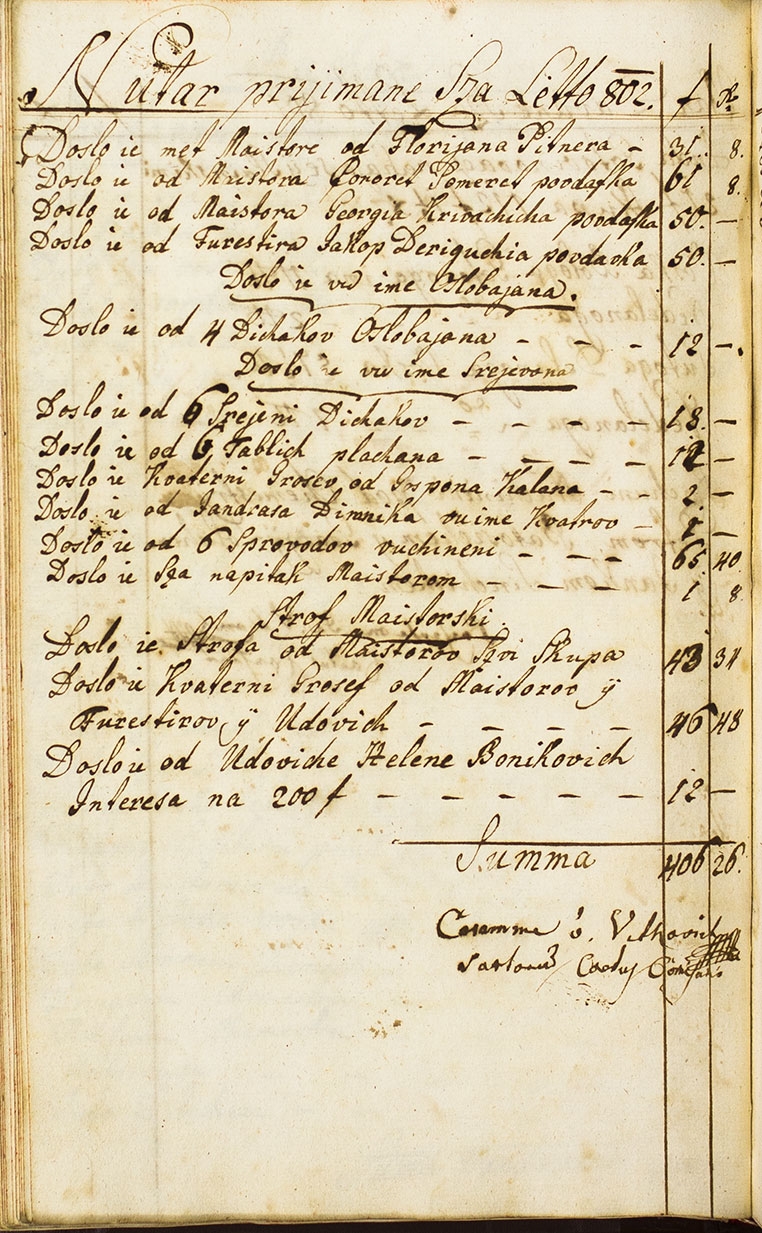 Nutar prijimane Sza Letto 802. f xr
Doslo ie met Maistore od Florijana Pitnera – 31. 8.
Doslo ie od Maistora Conoret Pomeret povdafka 61 8.
Doslo ie od Maistora Georgia Krivachicha povdafka 50. –
Doslo ie od Furestira Jakop Deriguchia povdavka 50. –
Doslo ie vu ime Oslobajana.
Doslo ie od 4 Dichakov Oslobajana – – – 12 –.
Doslo ie vu ime Srejevana
Doslo ie od 6 Srejeni Dichakov – – – – 18. –
Doslo ie od 6 Tablich plachana – – – – 12 –
Doslo ie Kvaterni Grosev od Gospona Kalana – – 2. –
Doslo ie od Jandrasa Dimnika vu ime Kvatrov – –
Doslo ie od 6 Sprovodov vuchineni – – – 65. 40
Doslo ie Sza napitak Maistorom – – – 1 8
Strof Maistorski.
Doslo ie Strofa od Maistorov Szvi Skupa 43 34
Doslo ie Kvaterni Grosef od Maistorov ÿ
Furestirov ÿ Udovich – – – – 46 48
Doslo ie od Udoviche Helene Bonikovich
Interesa na 200 f – – – – – 12 –
Summa 406 26.
V.tkovich